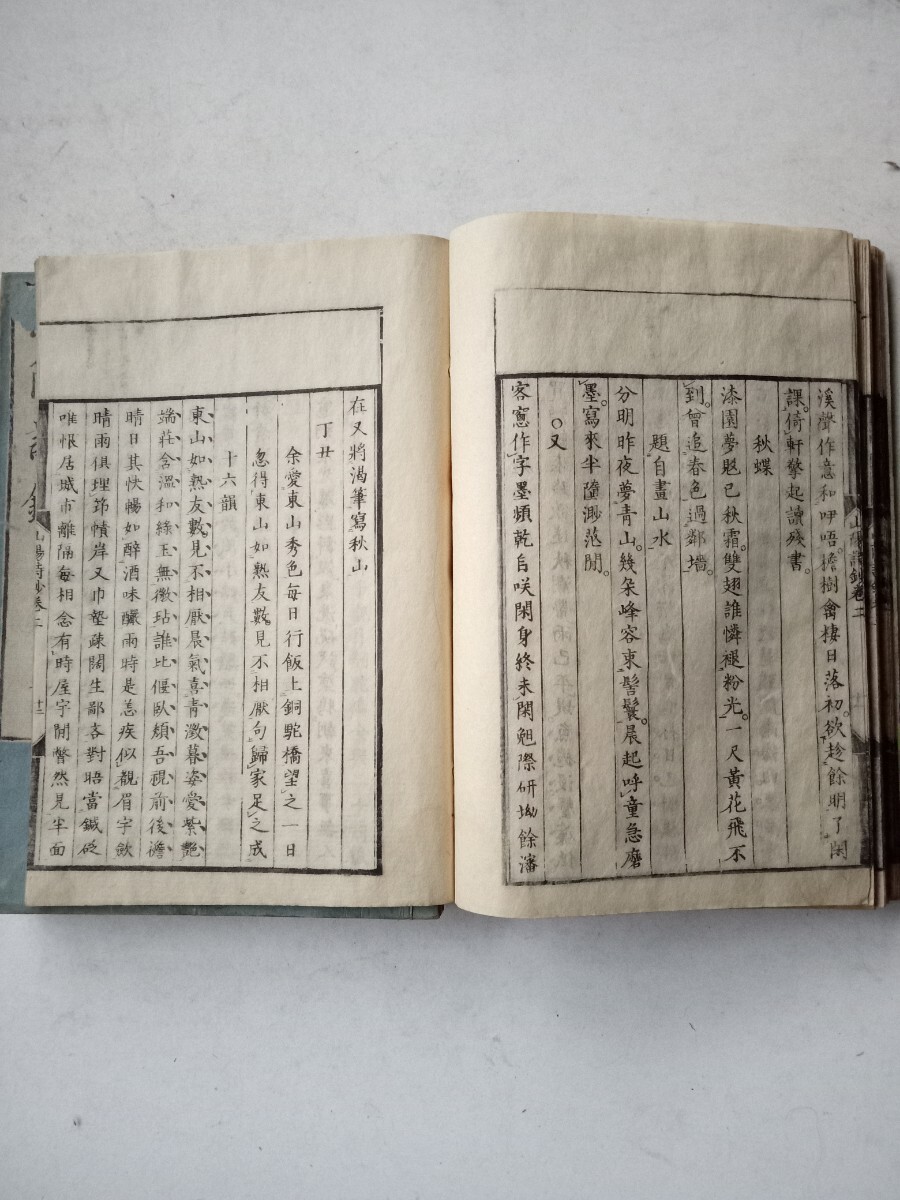 溪聲作意和咿唔。擔樹禽棲日落初。欲趁餘明了閑
課。倚軒擎起讀殘書。
秋蝶
漆園夢覺已秋霜。雙翅誰憐褪粉光。一尺黃花飛不
到。曾追春色過鄰墻。
題自畫山水
分明昨夜夢青山。幾朶峰容束髻鬟。晨起呼童急磨
墨。寫來半隨渺茫間。
○又
客窓作字墨頻乾。自咲閑身終未閑。觓際研坳餘瀋
在又將渴筆寫秋山
丁丑
余愛東山秀色每日行飯上銅駝橋望之一日
忽得東山如熟友數見不相厭句歸家足之成
十六韻
東山如熟友數見不相厭晨氣喜青澂暮姿愛紫艷
端莊含溫和綠玉無微玷誰比偃臥頰吾視前後澹
晴日其快暢如醉酒味釅雨時是恙疾似覩眉宇斂
晴雨俱理筇幘岸又巾墊疎闊生鄙吝對晤當鍼砭
唯恨居城市離隔每相念有時屋宇開瞥然見半面
山陽詩鈔卷二
十二
山陽詩鈔卷二